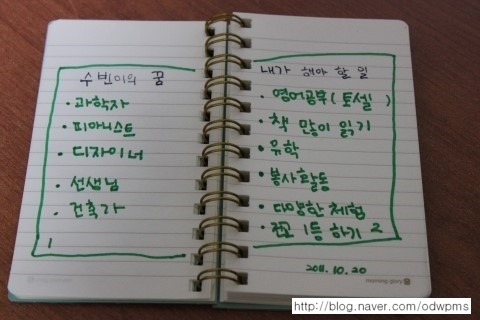 수빈이의 꿈
· 과학자
· 피아니스트
· 디자이너
· 선생님
· 건축가
1
내가 해야 할 일
· 영어공부 ( 토셀 )
· 책 많이 읽기
· 유학
· 봉사활동
· 다양한 체험
· 전교 1등 하기 2
2011.10.20
http://blog.naver.com/odwpms